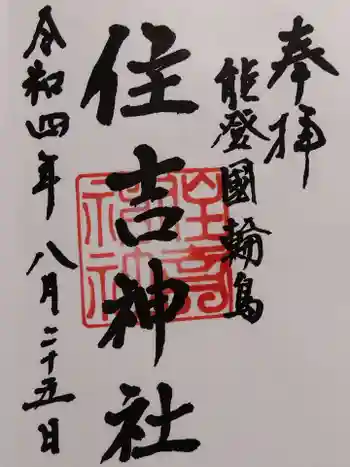 奉拝
能登國輪島
住吉神社
令和四年八月二十五日
住吉神社